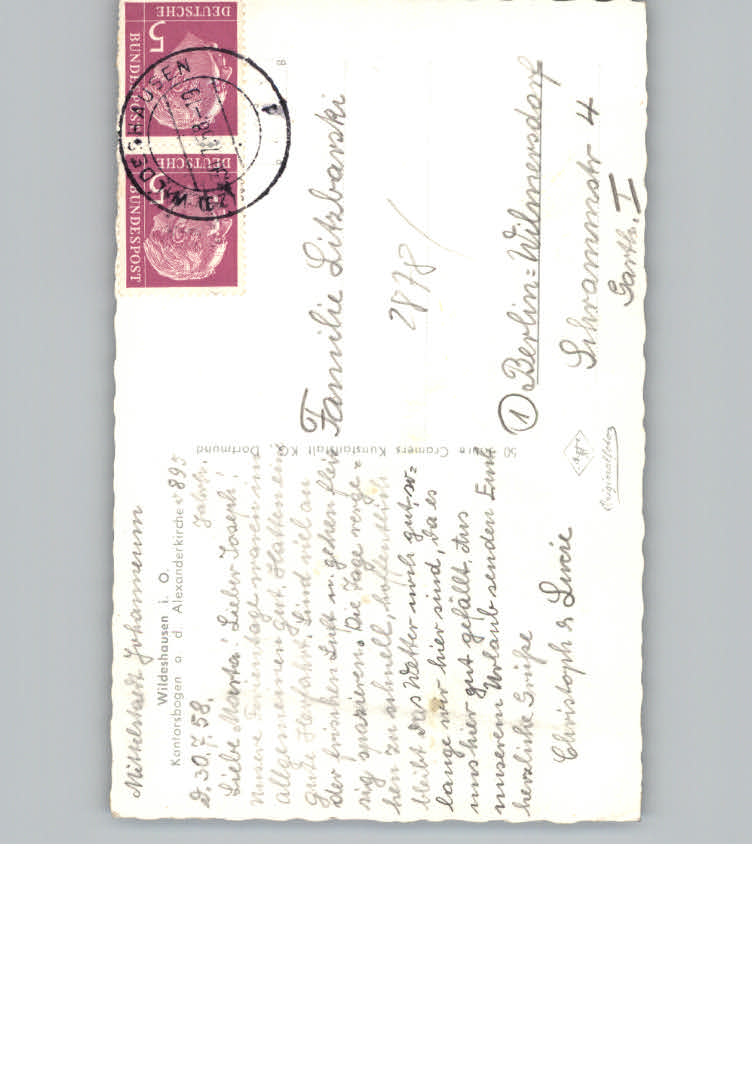 Mittelstadt Johanneum
Wildeshausen i. O.
Kantorsbogen a d. Alexanderkirche
d. 30.7.58.
Liebe Marta! Lieber Joseph!
Unsere Ferientage waren im
allgemeinen gut. Hatten eine
gute Herfahrt. Sind viel an
der frischen Luft u. gehen flei-
sig spazieren. Die Tage verge-
hen zu schnell, hoffentlich
bleibt das Wetter noch gut so-
lange wir hier sind, da es
uns hier gut gefällt. Aus
unserem Urlaub senden Euch
herzliche Grüße
Christoph & Lucie
Cramers Kunstanstalt KG., Dortmund
Originalfoto
DEUTSCHE
BUNDESPOST
5
DEUTSCHE
BUNDESPOST
5
WILDESHAUSEN
Familie Litzbarski
2878
(1) Berlin=Wilmersdorf
Schrammstr 4
Garth. I